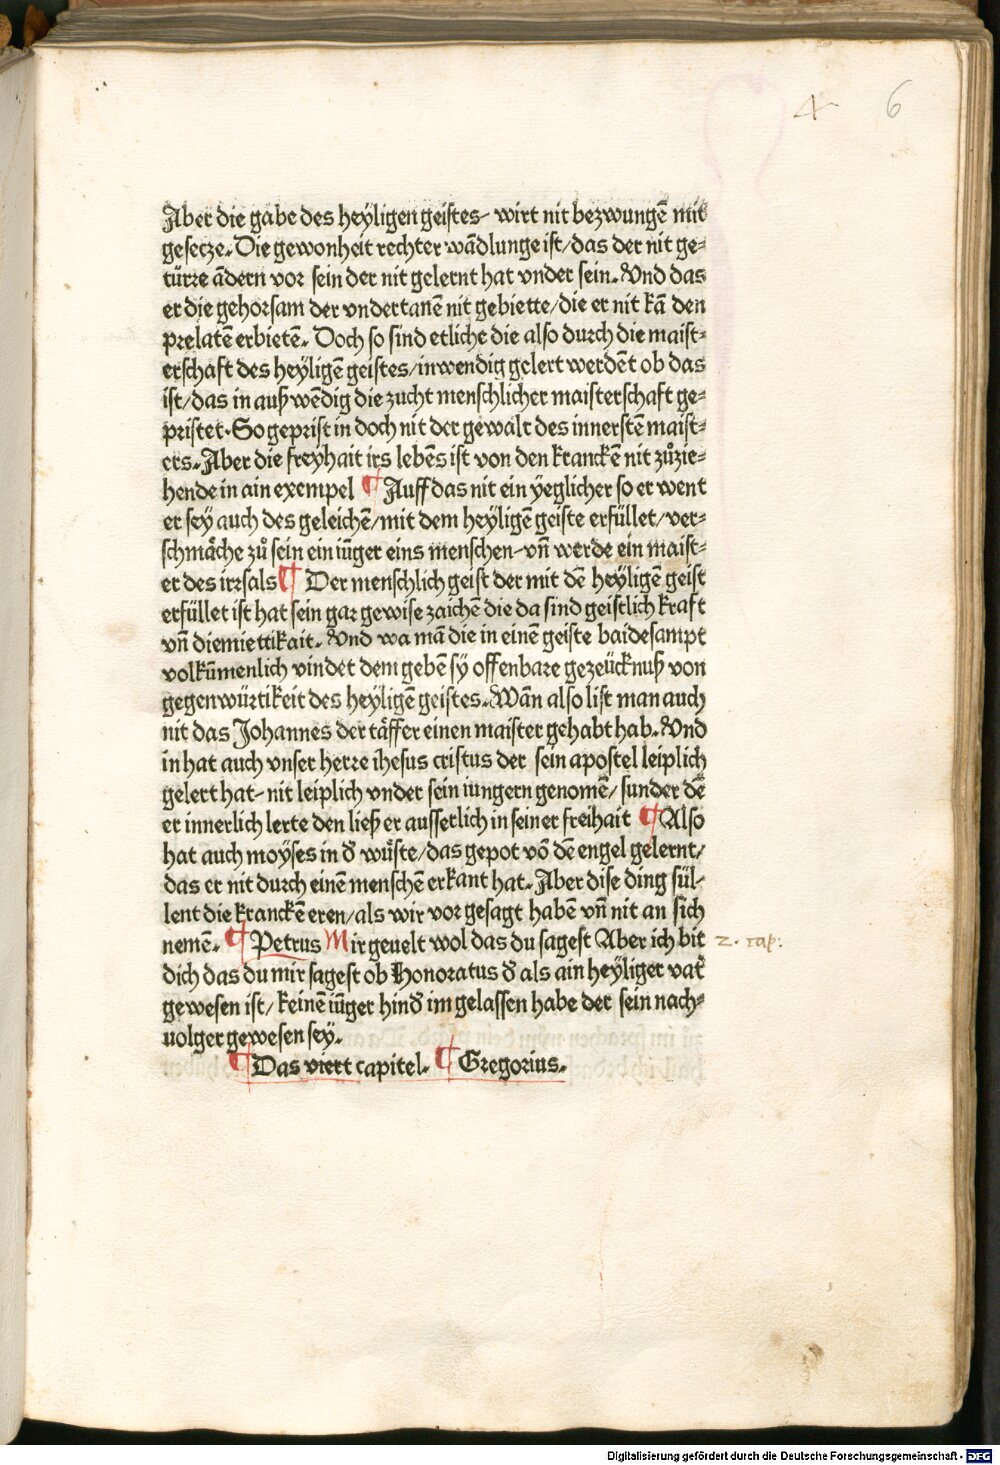 4 6
Aber die gabe des heyligen geistes- wirt nit bezwungē mit
gesecze. Die gewonheit rechter wādlunge ist/das der nit ge=
türre ādern vor sein der nit gelernt hat vnder sein. Vnd das
er die gehorsam der vndertanē nit gebiette/die er nit kā den
prelatē erbietē. Doch so sind etliche die also durch die maist=
erschaft des heyligē geistes/inwendig gelert werdēt ob das
ist/das in außwēdig die zucht menschlicher maisterschaft ge=
pristet. So geprist in doch nit der gewalt des innerstē maist=
ers. Aber die freyhait irs lebēs ist von den kranckē nit zůzie=
hende in ain exempel ¶ Auff das nit ein yeglicher so er went
er sey auch des geleichē/mit dem heyligē geiste erfüllet/ver=
schmåche zů sein ein iūger eins menschen-vn̄ werde ein maist=
er des irrsals ¶ Der menschlich geist der mit dē heyligē geist
erfüllet ist hat sein gar gewise zaichē die da sind geistlich kraft
vn̄ diemiettikait. Vnd wa mā die in einē geiste baidesampt
volkūmenlich vindet dem gebē sy offenbare gezeücknuß von
gegenwürtikeit des heyligē geistes. Wān also list man auch
nit das Johannes der tåffer einen maister gehabt hab. Vnd
in hat auch vnser herre ihesus cristus der sein apostel leiplich
gelert hat- nit leiplich vnder sein iungern genomē/ sunder dē
er innerlich lerte den ließ er ausserlich in seiner freihait ¶ Also
hat auch moyses in d̄ wůste/das gepot vō dē engel gelernt/
das er nit durch einē menschē erkant hat. Aber dise ding sül=
lent die kranckē eren/als wir vor gesagt habē vn̄ nit an sich
nemē. ¶ Petrus Mir geuelt wol das du sagest Aber ich bit
2. cap:
dich das du mir sagest ob Honoratus d̄ als ain heyliger vat̄
gewesen ist/ keinē iūger hind̄ im gelassen habe der sein nach=
uolger gewesen sey.
¶ Das viert capitel. ¶ Gregorius.
Digitalisierung gefördert durch die Deutsche Forschungsgemeinschaft - DFG